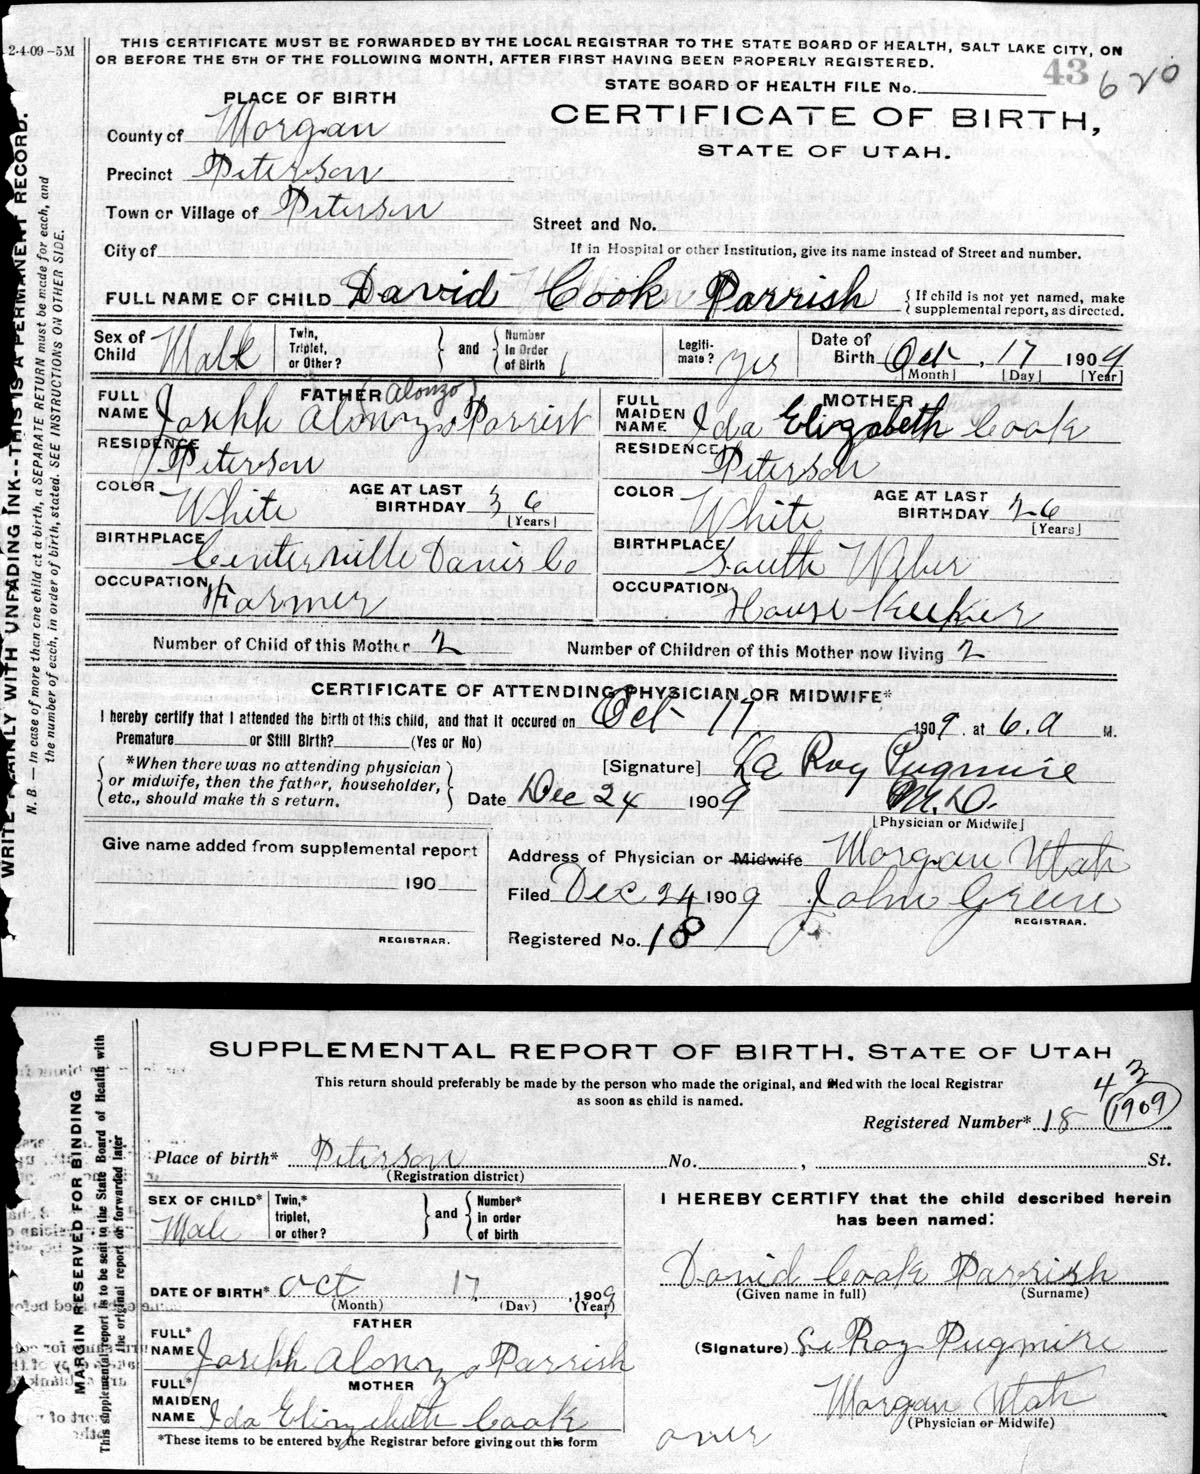 2-4-09-5M
THIS CERTIFICATE MUST BE FORWARDED BY THE LOCAL REGISTRAR TO THE STATE BOARD OF HEALTH, SALT LAKE CITY, ON
OR BEFORE THE 5TH OF THE FOLLOWING MONTH, AFTER FIRST HAVING BEEN PROPERLY REGISTERED.
STATE BOARD OF HEALTH FILE No. 43 620
PLACE OF BIRTH
CERTIFICATE OF BIRTH,
STATE OF UTAH.
County of Morgan
Precinct Peterson
Town or Village of Peterson
Street and No.
City of
If in Hospital or other Institution, give its name instead of Street and number.
FULL NAME OF CHILD David Cook Parrish
{ If child is not yet named, make
supplemental report, as directed.
Sex of Child Male
Twin, Triplet, or Other? } and { Number In Order of Birth 1
Legiti-mate? yes
Date of Birth Oct, 17 1909
[Month] [Day] [Year]
FATHER (Alonzo)
FULL NAME Joseph Alonzo Parrish
RESIDENCE Peterson
COLOR White
AGE AT LAST BIRTHDAY 36 [Years]
BIRTHPLACE Centerville Davis Co
OCCUPATION Farmer
MOTHER
FULL MAIDEN NAME Ida Elizabeth Cook
RESIDENCE Peterson
COLOR White
AGE AT LAST BIRTHDAY 26 [Years]
BIRTHPLACE South Weber
OCCUPATION House-Keeper
Number of Child of this Mother 2
Number of Children of this Mother now living 2
CERTIFICATE OF ATTENDING PHYSICIAN OR MIDWIFE*
I hereby certify that I attended the birth of this child, and that it occured on Oct 17 1909. at 6.a M.
Premature or Still Birth? (Yes or No)
{ *When there was no attending physician
or midwife, then the father, householder,
etc., should make th s return. }
[Signature] Le Roy Pugmire
Date Dec 24 1909 M.D.
[Physician or Midwife]
Give name added from supplemental report
190
REGISTRAR.
Address of Physician or Midwife Morgan Utah
Filed Dec 24 1909 John Green
REGISTRAR.
Registered No. 18
WRITE PLAINLY WITH UNFADING INK--THIS IS A PERMANENT RECORD.
N. B.—In case of more than one child at a birth, a SEPARATE RETURN must be made for each, and
the number of each, in order of birth, stated. SEE INSTRUCTIONS ON OTHER SIDE.
SUPPLEMENTAL REPORT OF BIRTH. STATE OF UTAH
This return should preferably be made by the person who made the original, and filed with the local Registrar
as soon as child is named.
43
Registered Number* 18 1909
Place of birth* Peterson No. , St.
(Registration district)
SEX OF CHILD* Male
Twin,* triplet, or other? } and { Number* in order of birth
DATE OF BIRTH* Oct 17, 1909
(Month) (Day) (Year)
FATHER
FULL* NAME Joseph Alonzo Parrish
MOTHER
FULL* MAIDEN NAME Ida Elizabeth Cook
*These items to be entered by the Registrar before giving out this form
I HEREBY CERTIFY that the child described herein
has been named:
David Cook Parrish
(Given name in full) (Surname)
(Signature) Le Roy Pugmire
Morgan Utah
(Physician or Midwife)
over
MARGIN RESERVED FOR BINDING
This supplemental report is to be sent to the State Board of Health with
the original report or forwarded later